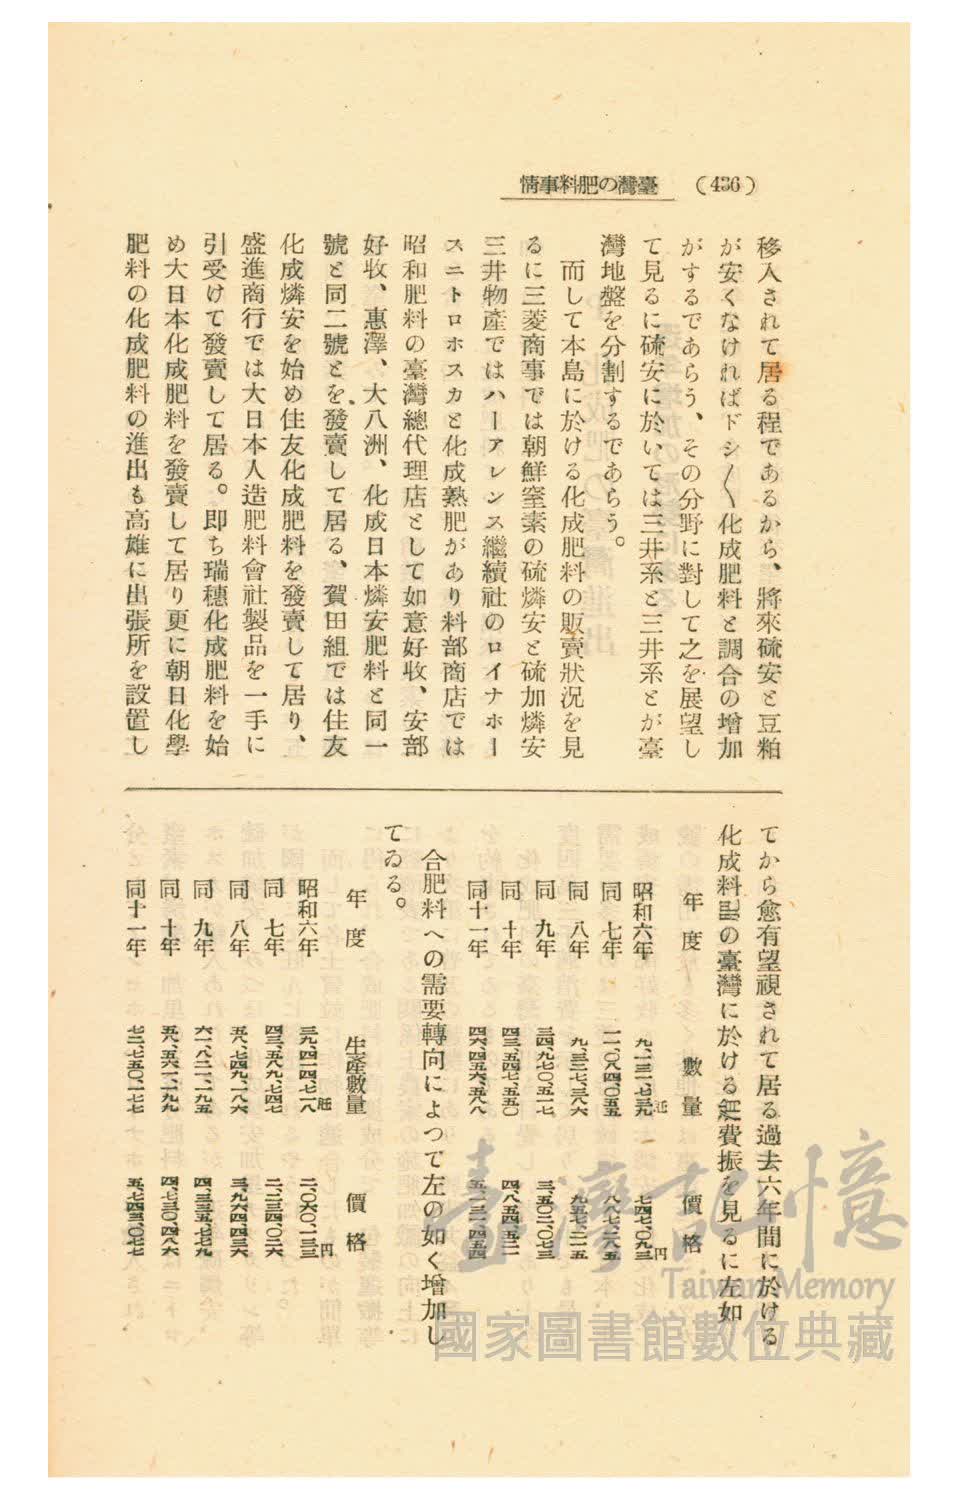 (436) 臺灣の肥料事情
移入されて居る程であるから、將來硫安と豆粕
が安くなければドシ〳〵化成肥料と調合の增加
がするであらう、その分野に對して之を展望し
て見るに硫安に於いては三井系と三井系とが臺
灣地盤を分割するであらう。
而して本島に於ける化成肥料の販賣狀況を見
るに三菱商事では朝鮮窒素の硫燐安と硫加燐安
三井物產ではハーアレンス繼續社のロイナホー
スニトロホスカと化成熟肥があり料部商店では
昭和肥料の臺灣總代理店として如意好收、安部
好收、惠澤、大八洲、化成日本燐安肥料と同一
號と同二號とを發賣して居る、賀田組では住友
化成燐安を始め住友化成肥料を發賣して居り、
盛進商行では大日本人造肥料會社製品を一手に
引受けて發賣して居る。卽ち瑞穗化成肥料を始
め大日本化成肥料を發賣して居り更に朝日化學
肥料の化成肥料の進出も高雄に出張所を設置し
てから愈有望視されて居る過去六年間に於ける
化成料肥の臺灣に於ける消費振を見るに左如
年度 數量 價格
昭和六年 九、一三一、七三九瓩 七四七、〇九三円
同 七年 一一、〇八四、〇五五 八八七、二八五
同 八年 九、三三七、三八六 九五七、二一五
同 九年 三四、九七〇、五一七 三、五〇二、〇七三
同 十年 四三、五四七、五五〇 四、八五四、五三一
同十一年 四六、四五六、五八八 五、一三一、四五四
合肥料への需要轉向によつて左の如く增加し
てゐる。
年度 生產數量 價格
昭和六年 三九、四一四、七一八瓩 二、〇六〇、一三三円
同 七年 四三、五八九、七四七 二、二三四、〇二六
同 八年 五八、七四九、一八六 三、九六四、四三六
同 九年 六一、八二一、一九五 四、三三五、七七九
同 十年 五八、五六一、一九九 四、七三〇、四八六
同十一年 七二、七五〇、一七七 五、七四三、〇七七
臺灣記憶
Taiwan Memory
國家圖書館數位典藏